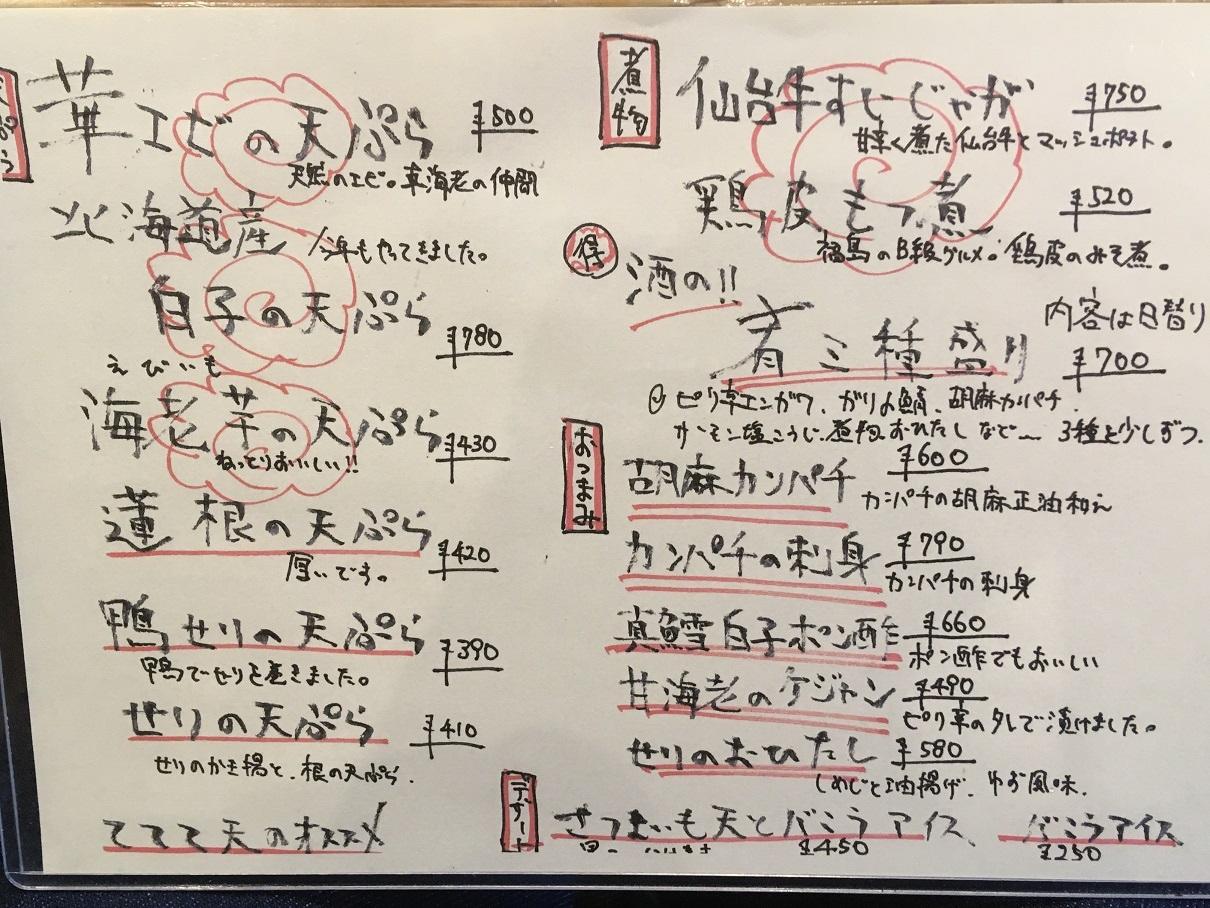 天ぷら
華エビの天ぷら ¥500
天然のエビ。車海老の仲間
北海道産 今年もやってきました。
白子の天ぷら ¥780
えびいも
海老芋の天ぷら ¥430
ねっとりおいしい!!
蓮根の天ぷら ¥420
厚いです。
鴨せりの天ぷら ¥390
鴨でせりを巻きました。
せりの天ぷら ¥410
せりのかき揚と、根の天ぷら.
ててて天のオススメ
煮物
仙台牛すじじゃが ¥750
甘辛く煮た仙台牛とマッシュポテト。
鶏皮もつ煮 ¥520
福島のB級グルメ。鶏皮のみそ煮。
得 酒の!!
肴三種盛り 内容は日替り ¥700
ピリ辛エンガワ、ガリ〆鯖、胡麻カンパチ、
サーモン塩こうじ、煮物、おひたしなど〜 3種を少しずつ.
おつまみ
胡麻カンパチ ¥600
カンパチの胡麻正油和え
カンパチの刺身 ¥790
カンパチの刺身
真鱈白子ポン酢 ¥660
ポン酢でもおいしい
甘海老のケジャン ¥490
ピリ辛のタレで漬けました。
せりのおひたし ¥580
しめじと油揚げ、ゆず風味.
デザート
さつまいも天とバニラアイス ¥450
バニラアイス ¥250